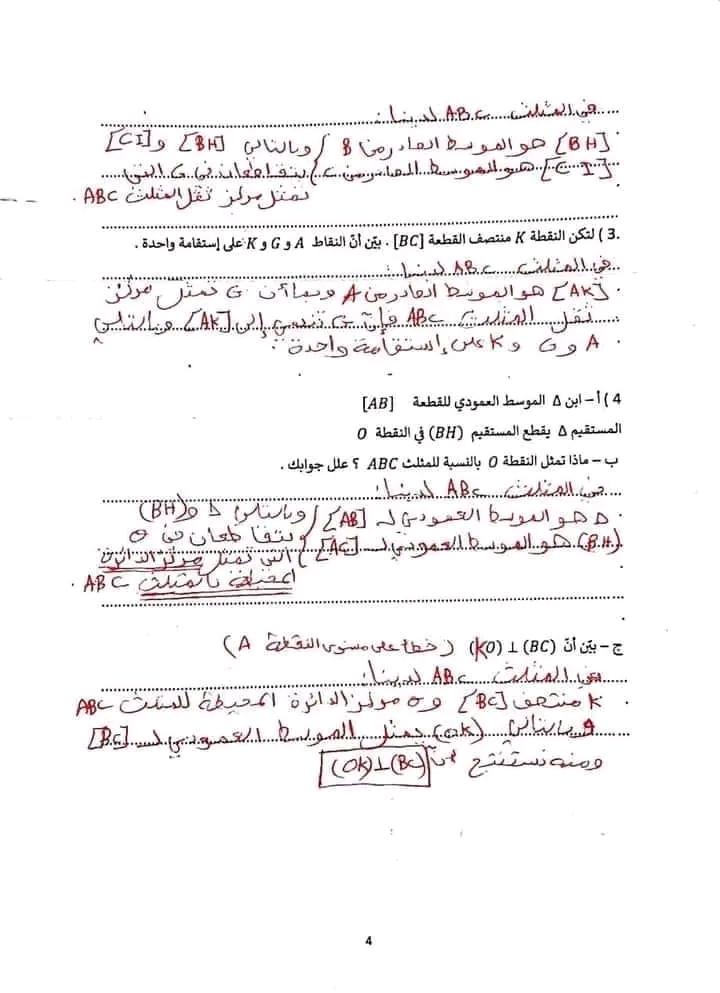 في المثلث ABC لدينا :
[BH] هو الموسط الصادر من B / وبالتالي [BH] و [CI]
[CI] هو الموسط الصادر من C / يتقاطعان في G التي
تمثل مركز ثقل المثلث ABC .
3) لتكن النقطة K منتصف القطعة [BC] . بيّن أنّ النقاط A و G و K على إستقامة واحدة .
في المثلث ABC لدينا :
[AK] هو الموسط الصادر من A وبما أن G تمثل مركز
ثقل المثلث ABC فإن G تنتمي إلى [AK] وبالتالي
A و G و K على إستقامة واحدة .
4) أ – ابن Δ الموسط العمودي للقطعة [AB]
المستقيم Δ يقطع المستقيم (BH) في النقطة O
ب – ماذا تمثل النقطة O بالنسبة للمثلث ABC ؟ علل جوابك .
في المثلث ABC لدينا :
Δ هو الموسط العمودي لـ [AB] / وبالتالي Δ و (BH)
(BH) هو الموسط العمودي لـ [AC] / يتقاطعان في O
التي تمثل مركز الدائرة
المحيطة بالمثلث ABC .
ج – بيّن أنّ (KO) ⊥ (BC) (خطأ على مستوى النقطة A)
في المثلث ABC لدينا :
K منتصف [BC] و O مركز الدائرة المحيطة للمثلث ABC
وبالتالي (OK) يمثل الموسط العمودي لـ [BC]
ومنه نستنتج أن (OK)⊥(BC)
4